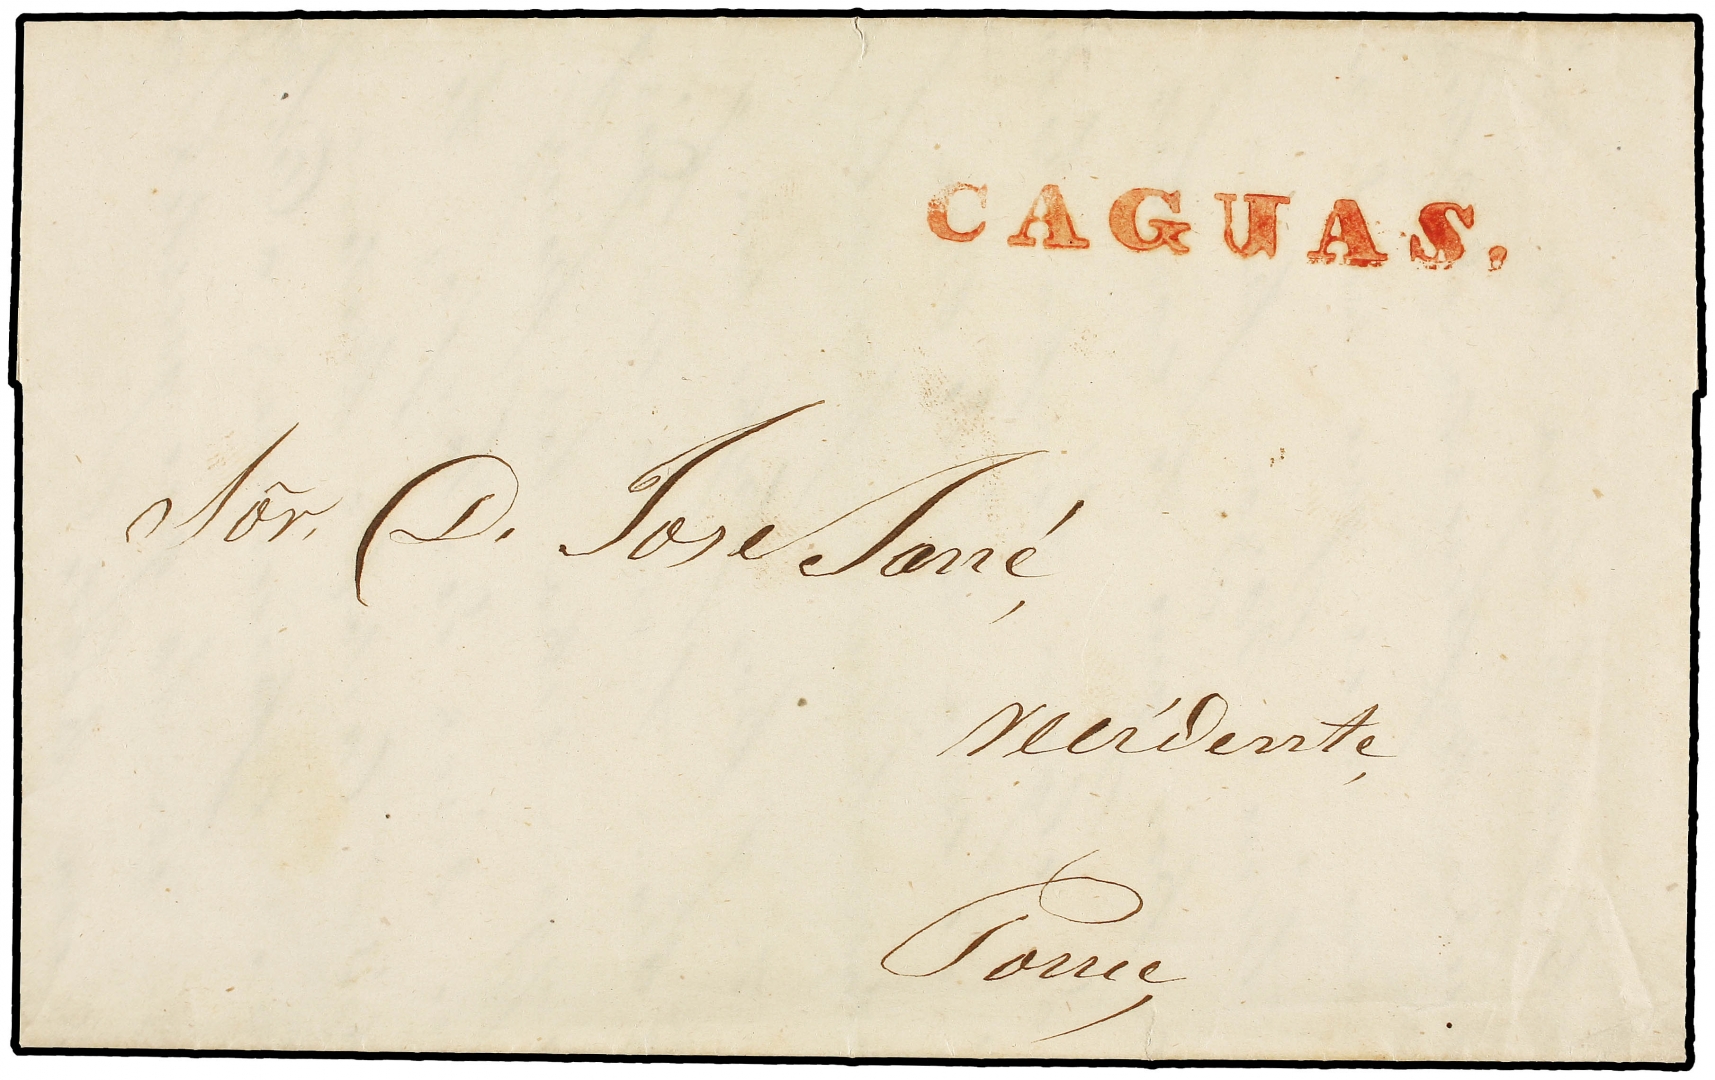 CAGUAS.
Sõr. D. Jose Jané,
recidente,
Ponce,